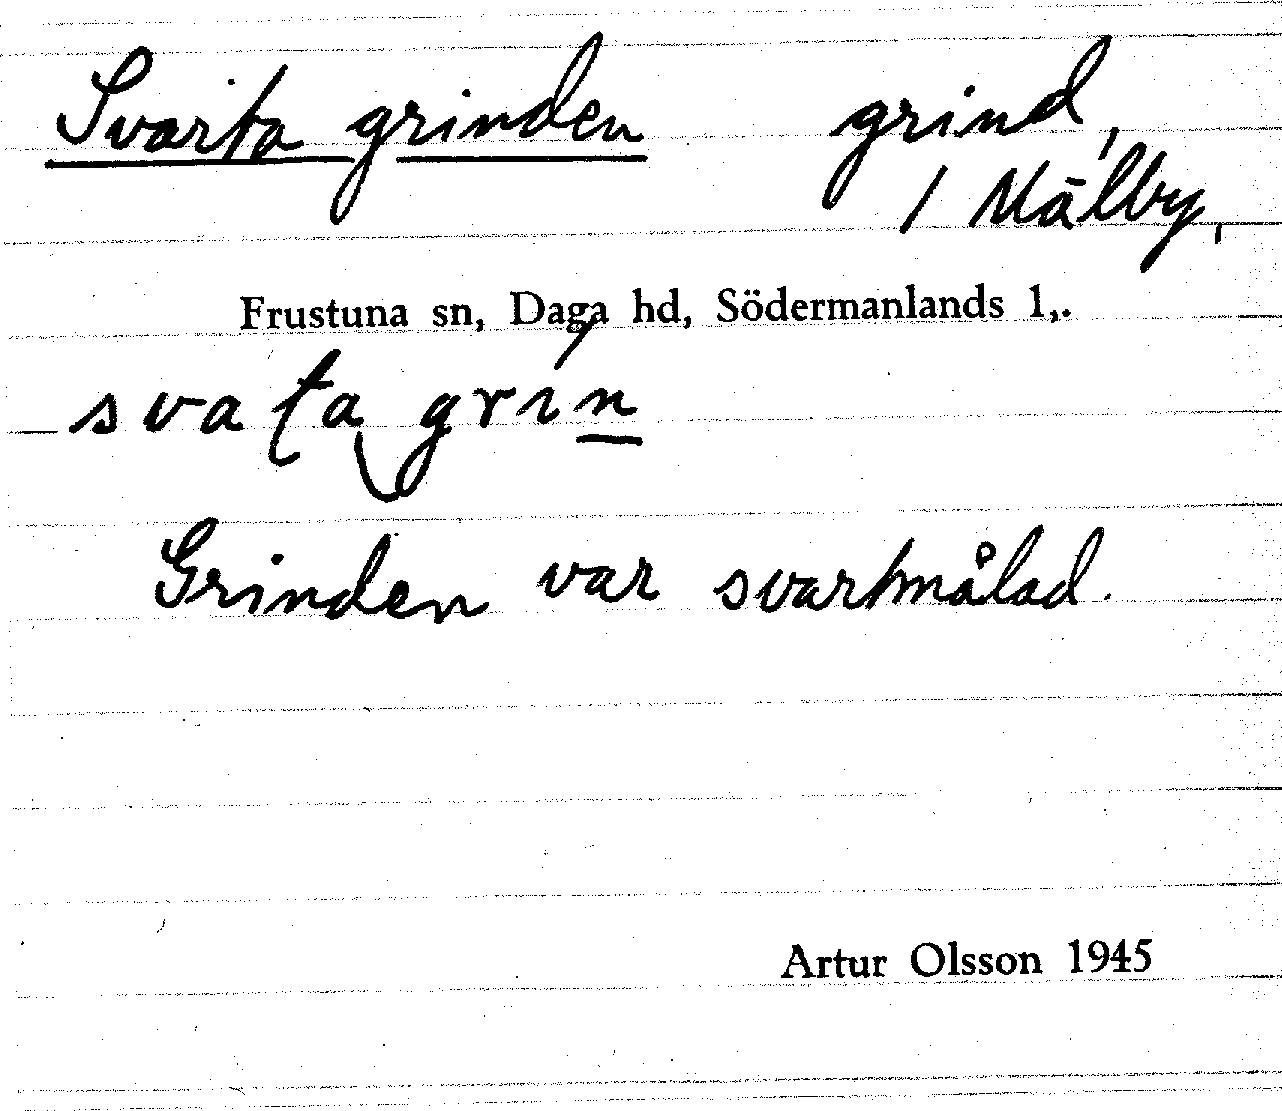 Svarta grinden grind,
/ Målby,
Frustuna sn, Daga hd, Södermanlands l,.
svaʈa‿grín̲
Grinden var svartmålad.
Artur Olsson 1945